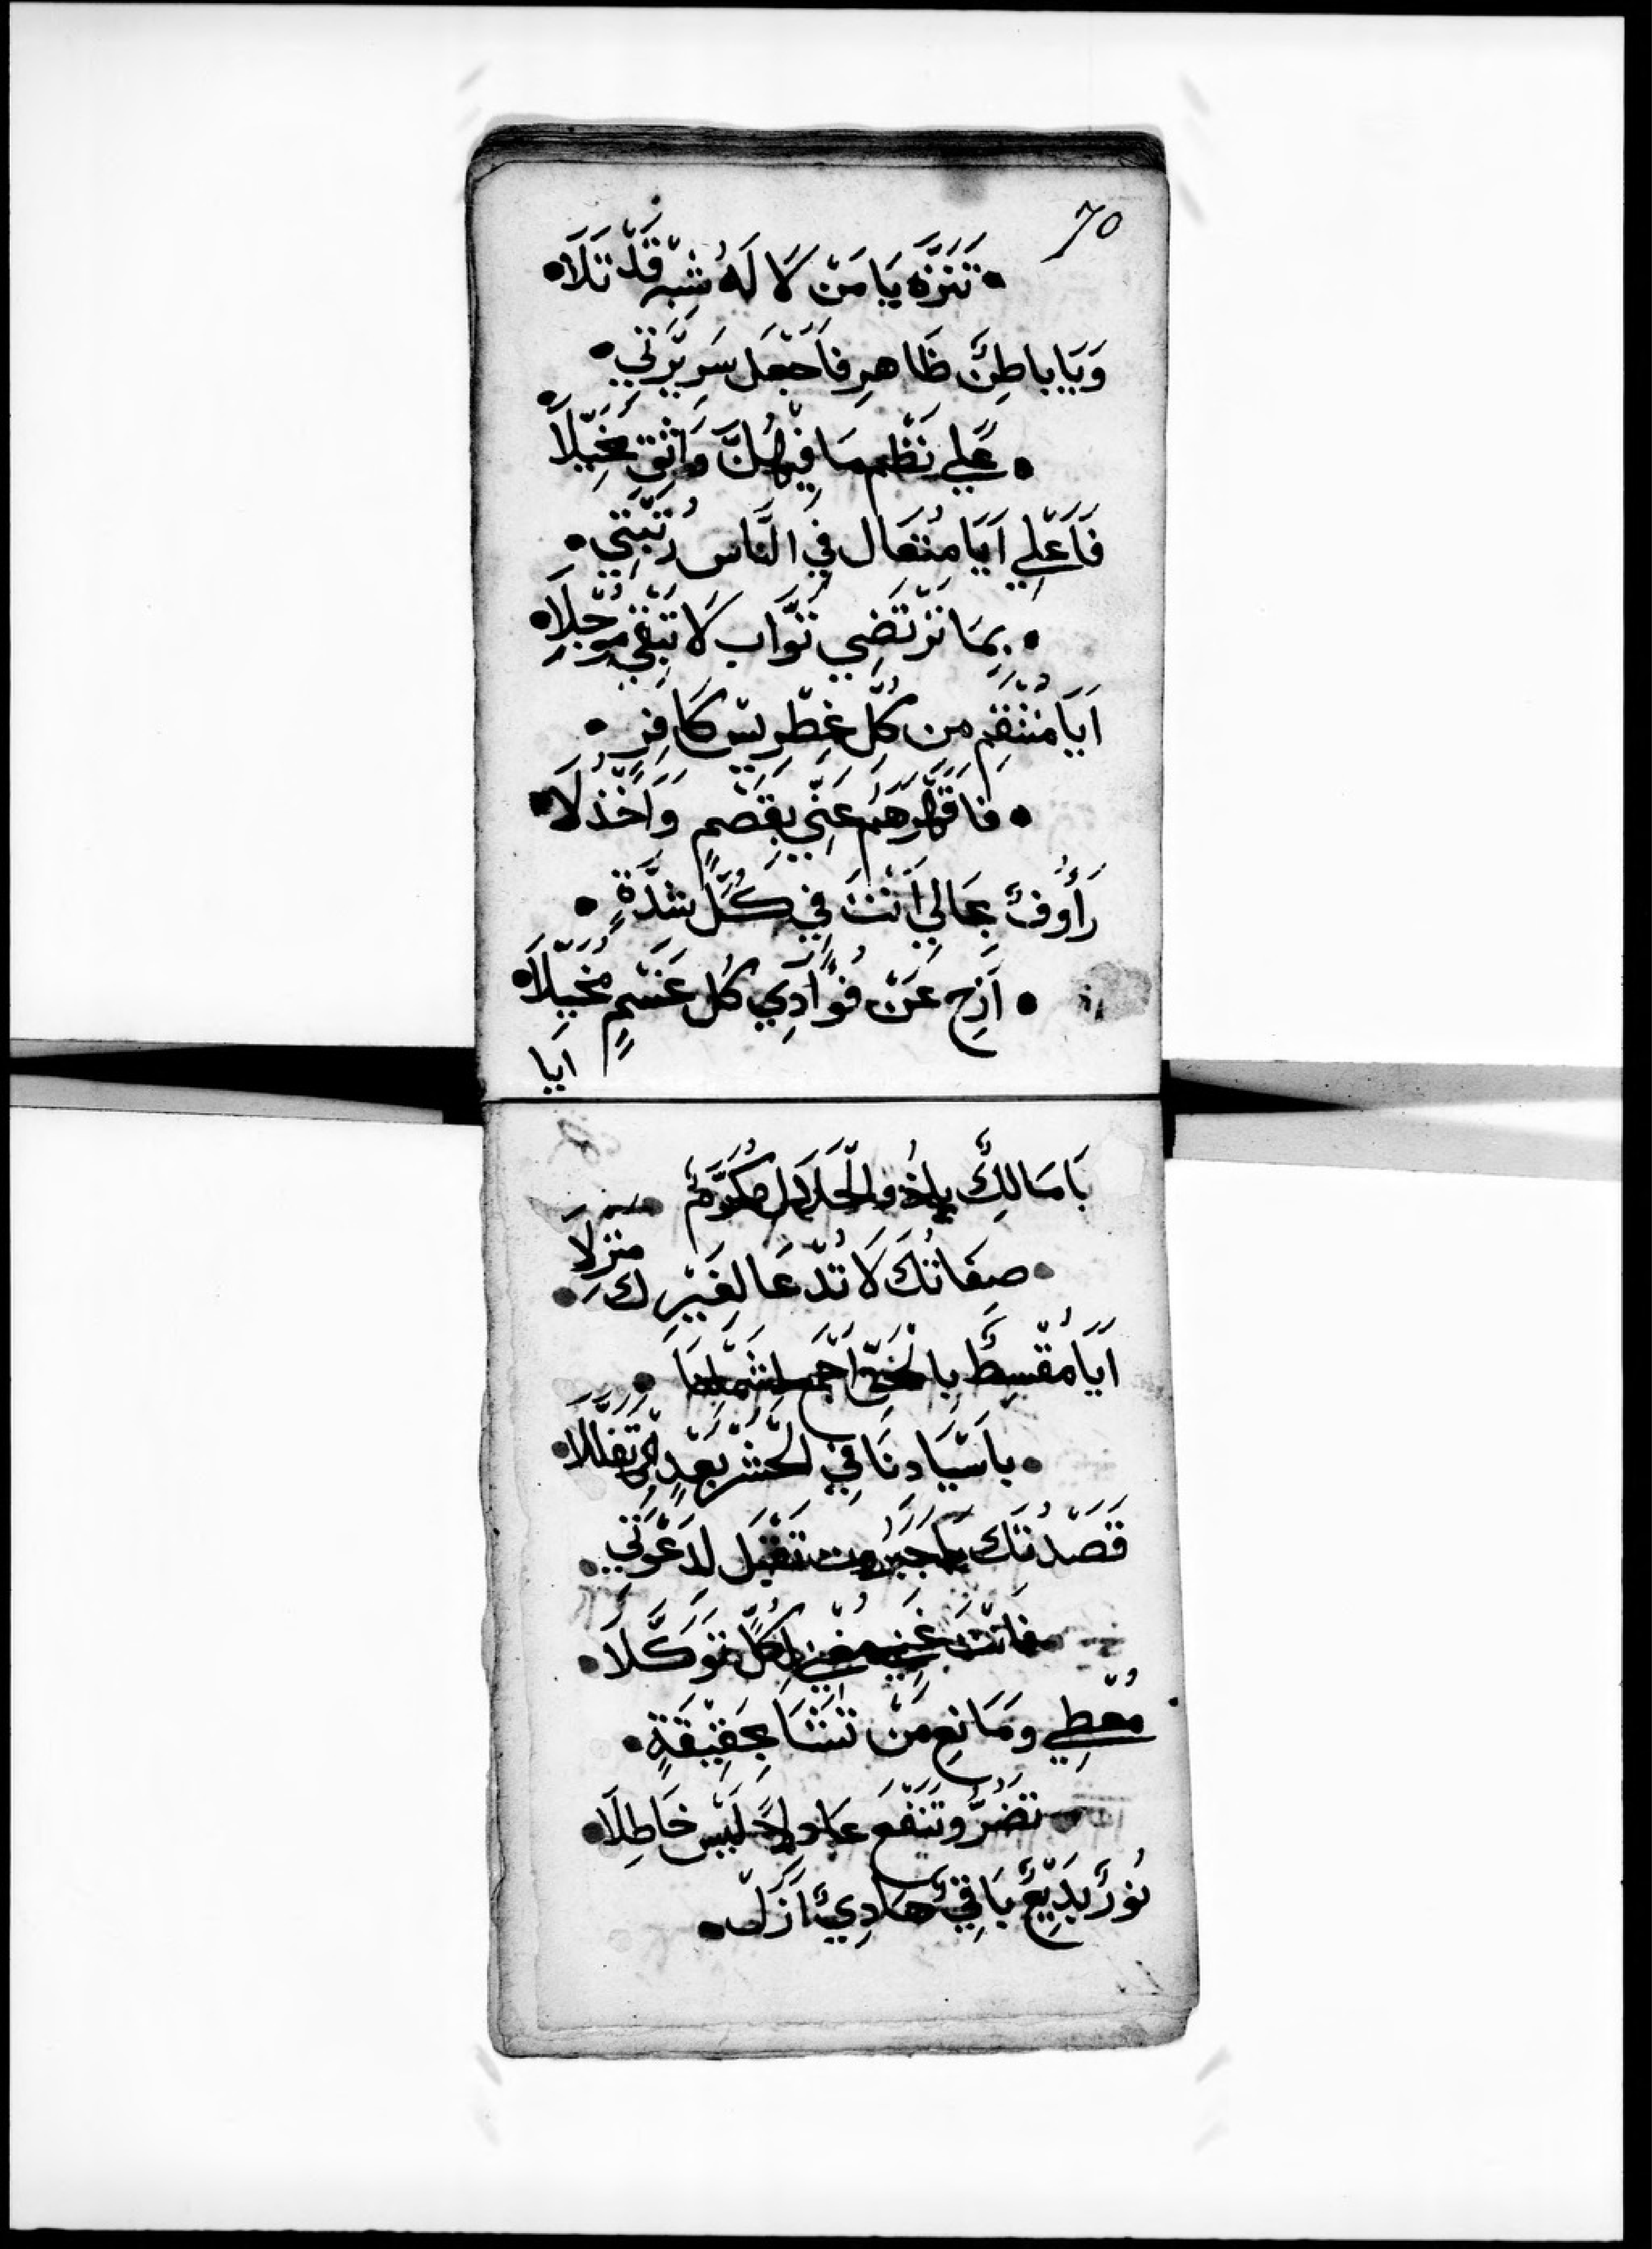 70
• تَنَزَّهَ يَا مَنْ لَا لَهُ شِبْه قَدْ تَلَا •
وَيَا بَاطِنٌ ظَاهِرِ فَاَجْعَل سَرِيْرَتِي •
• عَلَي نَظْم مَا فِيْهُنَّ وَاثِق
فَاَعْلِي اَيَا مُتعَال فِي النَّاس رُتْبَتِي •
• بِمَا تَرْتَضِي تَوَّاب لَا تَبْقِي
اَيَا مُنْتَقِم مِن كُلِّ غِطْرِيسٍ كَافِرِ •
• فَاقْهَرْهم عَنِّي بِقَصْمٍ وَاَخْذُلَا •
رَأُوفٌ بِحَالِي اَنْتَ فِي كُلِّ شِدَّةٍ •
• اَزِح عَنْ فُؤَادِي كُل غَمٍ
ايا
يَا مَالِكٌ يَا ذُو الْجَلَال مُكَرَّمٌ
• صِفَاتُكَ لَا تُدْعَا لِغَيْرِك مَنْزِلَا •
اَيَا مُقْسِطٌ بِالْخَيْرِ اجْمَع لِشَمْلِنَا •
• بِاَسْيَادِنَا فِي الْحَشْرِ بَعْدٍ
قَصَدْتُكَ يَا جَبَرُوت تَقْبَل لِدَعْوَتِي •
فَاَنْتَ غَنِي مُغْنِي لِكُلٍّ تَوَكَّلَا •
مُعْطِي وَمَانِع مَنْ تَشَا بِحَقِيْقَةٍ •
• تَضُرُّ وَتَنْفَع لَيْس خَاطِلَا •
نُورٌ بَدِيْعٌ بَاقِيٌ هَادِيٌ اَزَل •